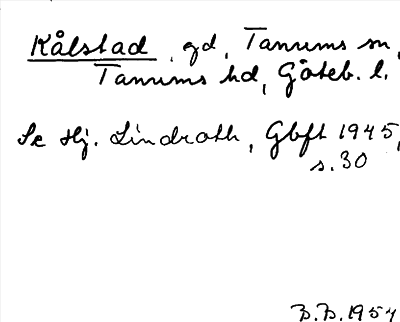 Kålstad, gd, Tanums sn,
Tanums hd, Göteb. l.
Se Hj. Lindroth, Gbft 1945,
s. 30
B.B. 1954